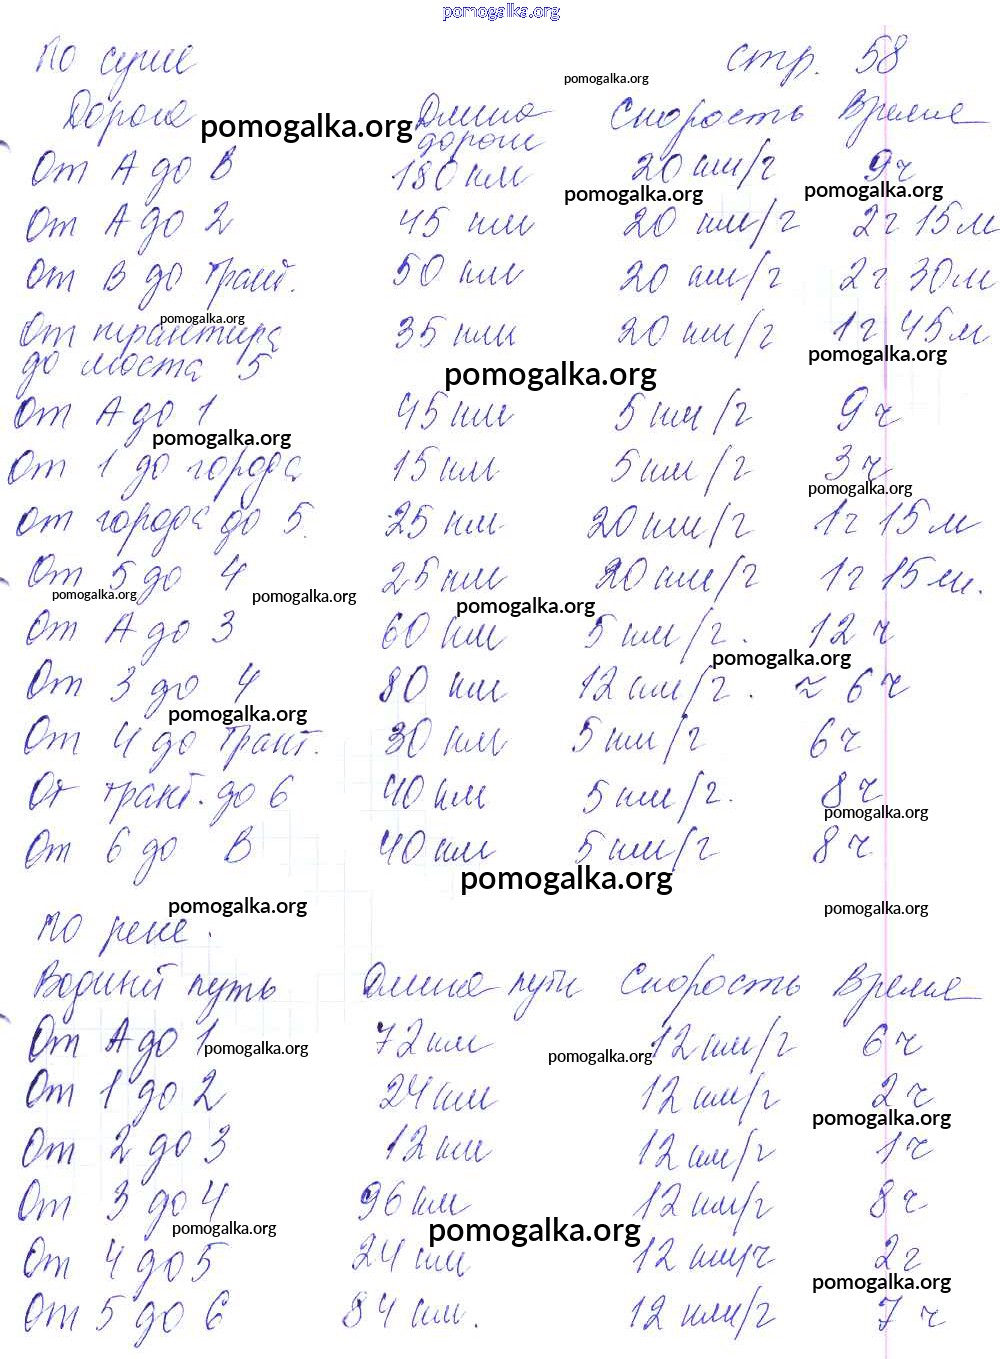 pomogalka.org
По суше стр. 58
pomogalka.org
Дорога Длина дороги Скорость Время
pomogalka.org
От А до В 180 км 20 км/ч 9ч
pomogalka.org pomogalka.org
От А до 2 45 км 20 км/ч 2ч 15м
От В до тракт. 50 км 20 км/ч 2ч 30м
pomogalka.org
От трактира до моста 5 35 км 20 км/ч 1ч 45м
pomogalka.org
pomogalka.org
От А до 1 45 км 5 км/ч 9ч
pomogalka.org
От 1 до города 15 км 5 км/ч 3ч
pomogalka.org
от города до 5. 25 км 20 км/ч 1ч 15м
От 5 до 4 25 км 20 км/ч 1ч 15м.
pomogalka.org pomogalka.org pomogalka.org
От А до 3 60 км 5 км/ч. 12 ч
pomogalka.org
От 3 до 4 80 км 12 км/ч. ≈ 6ч
pomogalka.org
От 4 до тракт. 30 км 5 км/ч 6ч
От тракт. до 6 40 км 5 км/ч. 8ч
pomogalka.org
От 6 до В 40 км 5 км/ч 8ч
pomogalka.org
pomogalka.org pomogalka.org
По реке.
Водный путь Длина пути Скорость Время
От А до 1 72 км 12 км/ч 6ч
pomogalka.org pomogalka.org
От 1 до 2 24 км 12 км/ч 2ч
pomogalka.org
От 2 до 3 12 км 12 км/ч 1ч
От 3 до 4 96 км 12 км/ч 8ч
pomogalka.org pomogalka.org
От 4 до 5 24 км 12 км/ч 2ч
pomogalka.org
От 5 до 6 84 км. 12 км/ч 7 ч